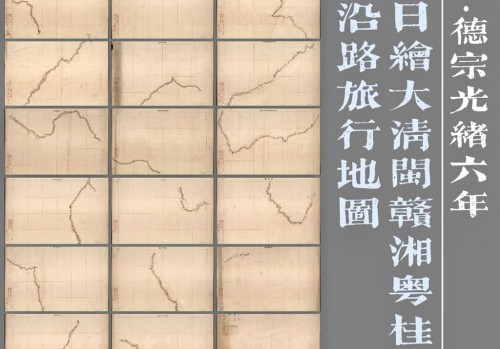 ·德宗光緒六年
日繪大清閩贛湘粤桂
沿路旅行地圖